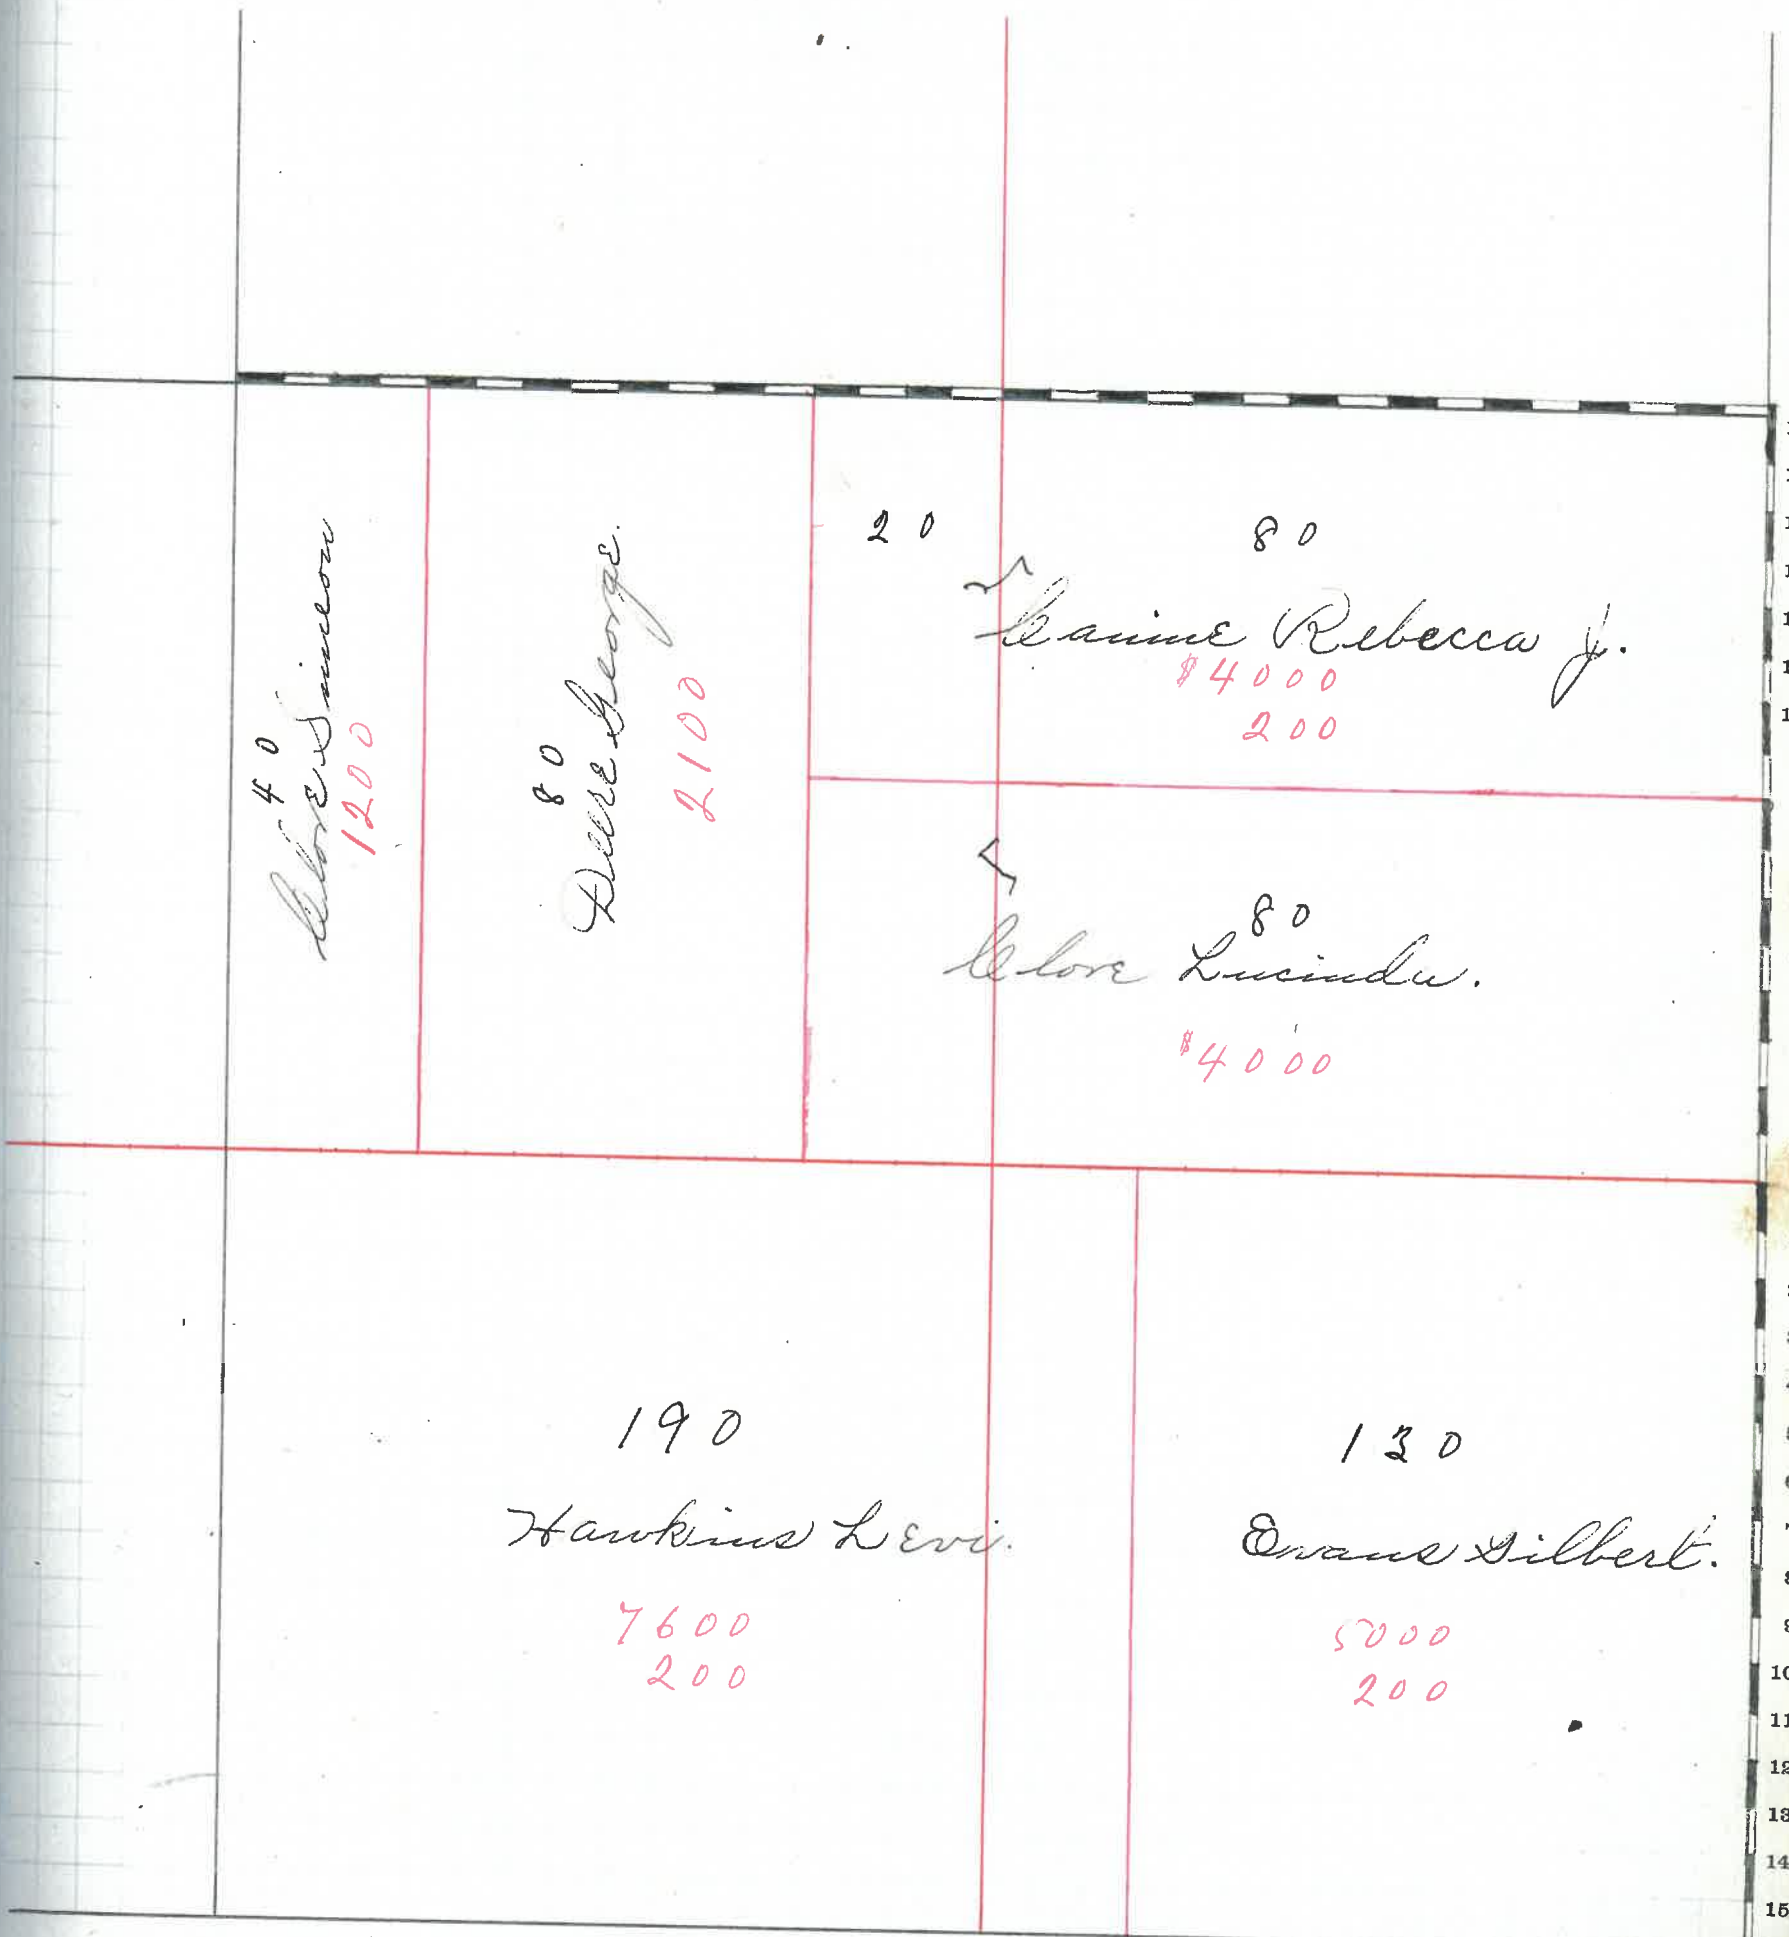 40
Clore Simeon
1200
80
Deere George.
2100
20
80
Canine Rebecca J.
$4000
200
80
Clore Lucinda.
$4000
190
Hawkins Levi.
7600
200
130
Evans Gilbert.
5000
200
10
11
12
13
14
15